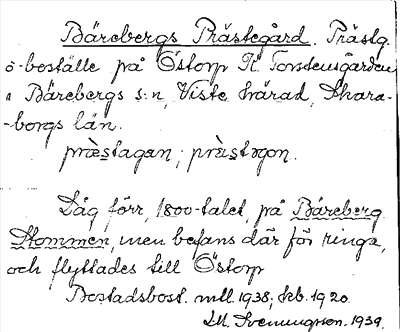 Bärebergs Prästegård. Prästg.
ö-boställe på Östorp N. Torstensgården
i Bärebergs s:n, Viste härad, Skara-
-borgs län.
præstagan; præstgon.
Låg förr, 1800-talet, på Bäreberg
Kommen, men befans där för ringa,
och flyttades till Östorp
Bostadsbost. mtl. 1938; kb. 1920.
Svenungson. 1939.